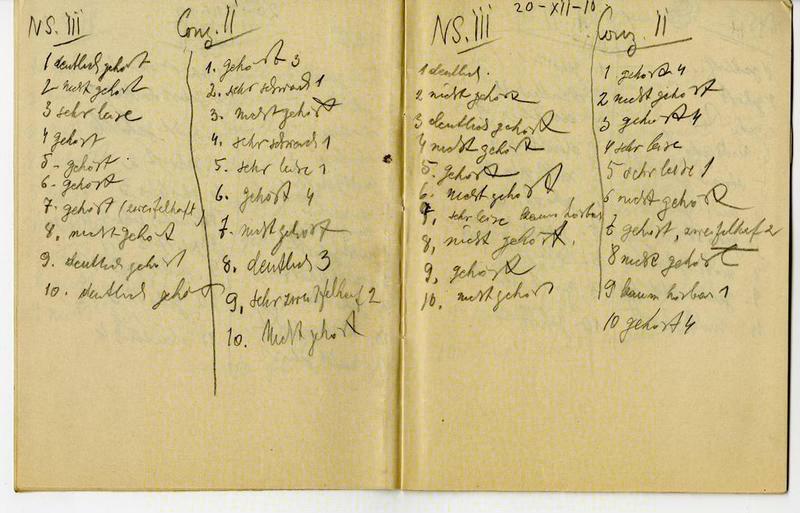 NS. III
1 deutlich gehört
2 nicht gehört
3 sehr leise
4 gehört
5 - gehört
6 - gehört
7. gehört (zweifelhaft)
8. nicht gehört
9. deutlich gehört
10. deutlich gehört
II
1. gehört 3
2. sehr schwach 1
3. nicht gehört
4. sehr schwach 1
5. sehr leise 1
6. gehört 4
7. nicht gehört
8. deutlich 3
9, sehr zweifelhaft 2
10. Nicht gehört
20-XII-10
NS. III
1 deutlich.
2 nicht gehört
3 deutlich gehört
4 nicht gehört
5. gehört
6. nicht gehört
7, sehr leise kaum hörbar
8, nicht gehört.
9, gehört
10. nicht gehört
II
1 gehört 4
2 nicht gehört
3 gehört 4
4 sehr leise
5 sehr leise 1
6 nicht gehört
7 gehört, zweifelhaft 2
8 nicht gehört
9 kaum hörbar 1
10 gehört 4